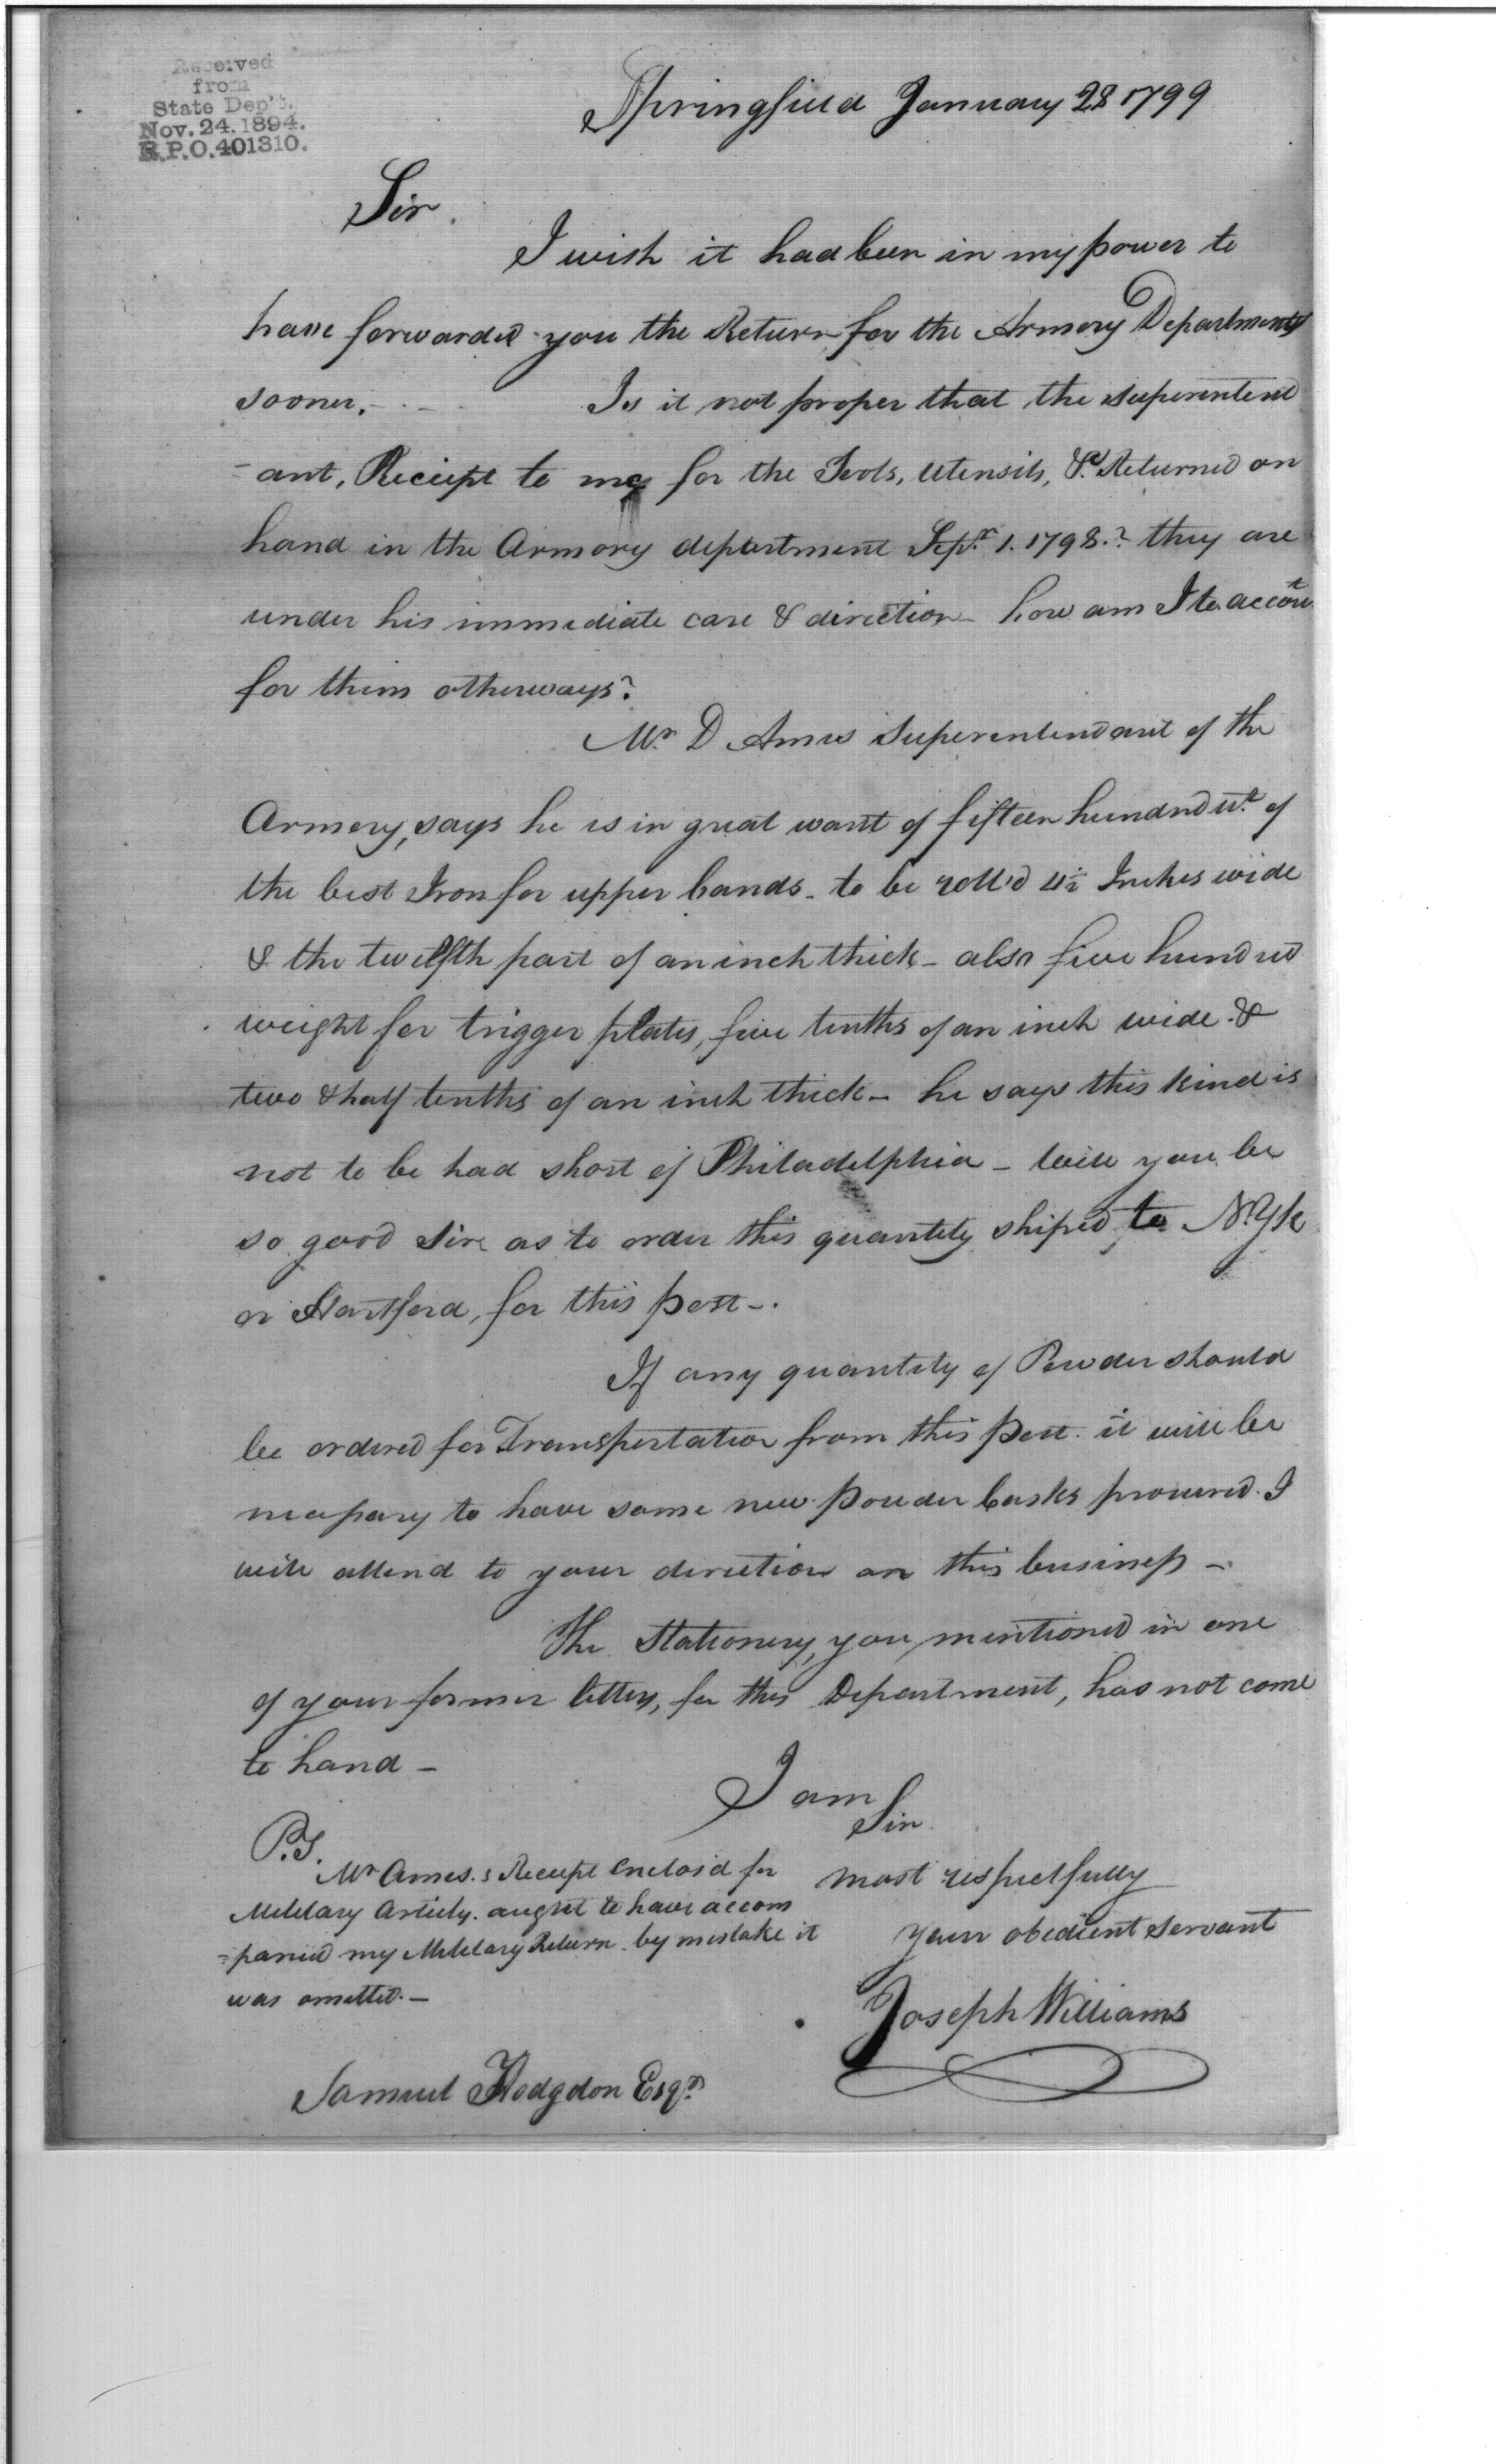 Received
from
State Dep't.
Nov. 24. 1894.
R.P.O. 401310.
Springfield January 28 1799
Sir.
I wish it had been in my power to
have forwarded you the Return for the Armory Department
sooner. - . -
Is it not proper that the superintend
-ant, Reciept to me for the Tools, Utensils, &c. Returned on
hand in the Armory department Sepr. 1. 1798.? they are
under his immediate care & direction - how am I to accot
for them otherways?
Mr. D Ames Superintendant of the
Armory, says he is in great want of fifteen hundred wt. of
the best Iron for upper bands - to be roll'd 4½ Inches wide
& the twelfth part of an inch thick - also five hundred
weight for trigger plates, five tenths of an inch wide &
two & half tenths of an inch thick - he says this kind is
not to be had short of Philadelphia - will you be
so good Sir as to order this quantity shiped to N.Yk
or Hartford, for this post -.
If any quantity of Powder should
be ordered for Transportation from this post. it will be
necessary to have some new powder Casks procured. I
will attend to your direction on this business -.
The Stationery, you mentioned in one
of your former letters, for this Department, has not come
to hand -
I am
Sir
most respectfully
your obedient servant
Joseph Williams
P.S.
Mr Ames.s Receipt Enclos'd for
Military Articles. aught to have accom
-panied my Military Return. by mistake it
was omitted. -
Samuel Hodgdon Esqr.